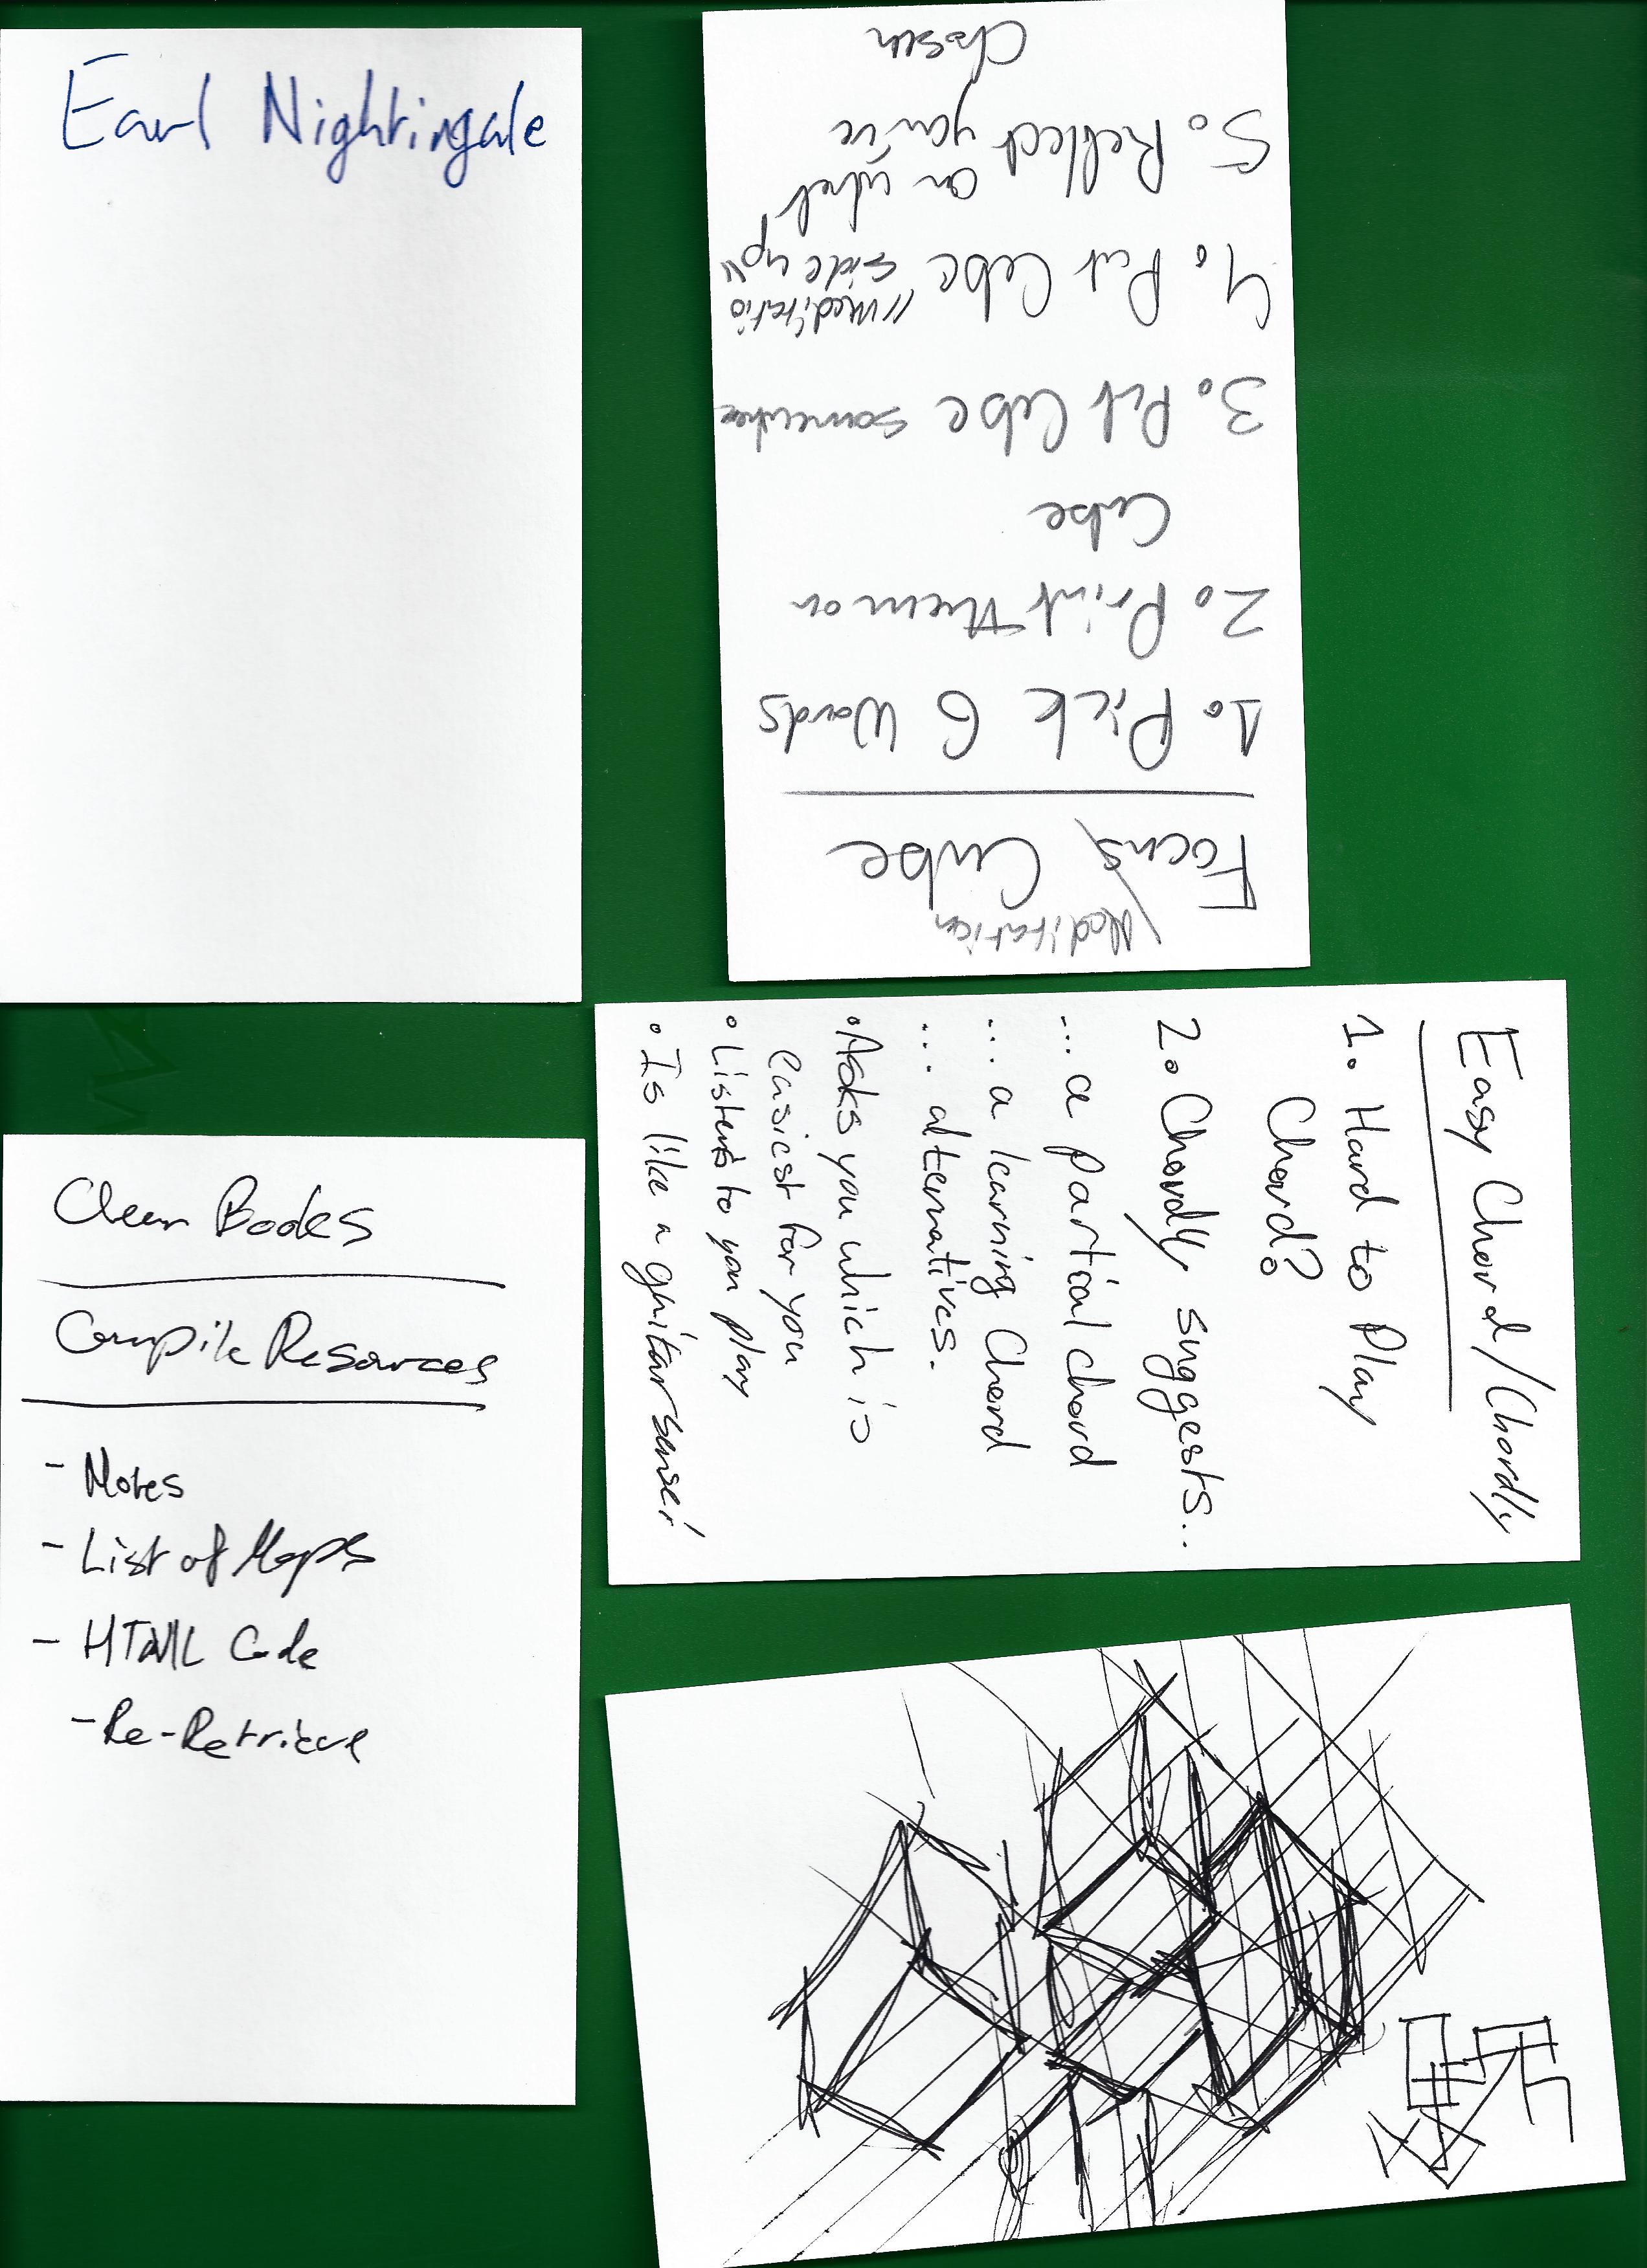 Earl Nightingale
Meditation
Focus Cube
1. Pick 6 Words
2. Print them on
Cube
3. Put Cube somewhere
4. Put Cube "Meditatio
side up"
5. Reflect on what
you've
Chosen
Easy Chord/Chordly
1. Hard to Play
Chord?
2. Chordly suggests...
... a partial chord
... a learning Chord
... alternatives.
• Asks you which is
easiest for you
• Listens to you play
• Is like a guitar sensei
Clean Bodes
Compile Resources
- Notes
- List of Maps
- HTML Code
- Re-Retrieve